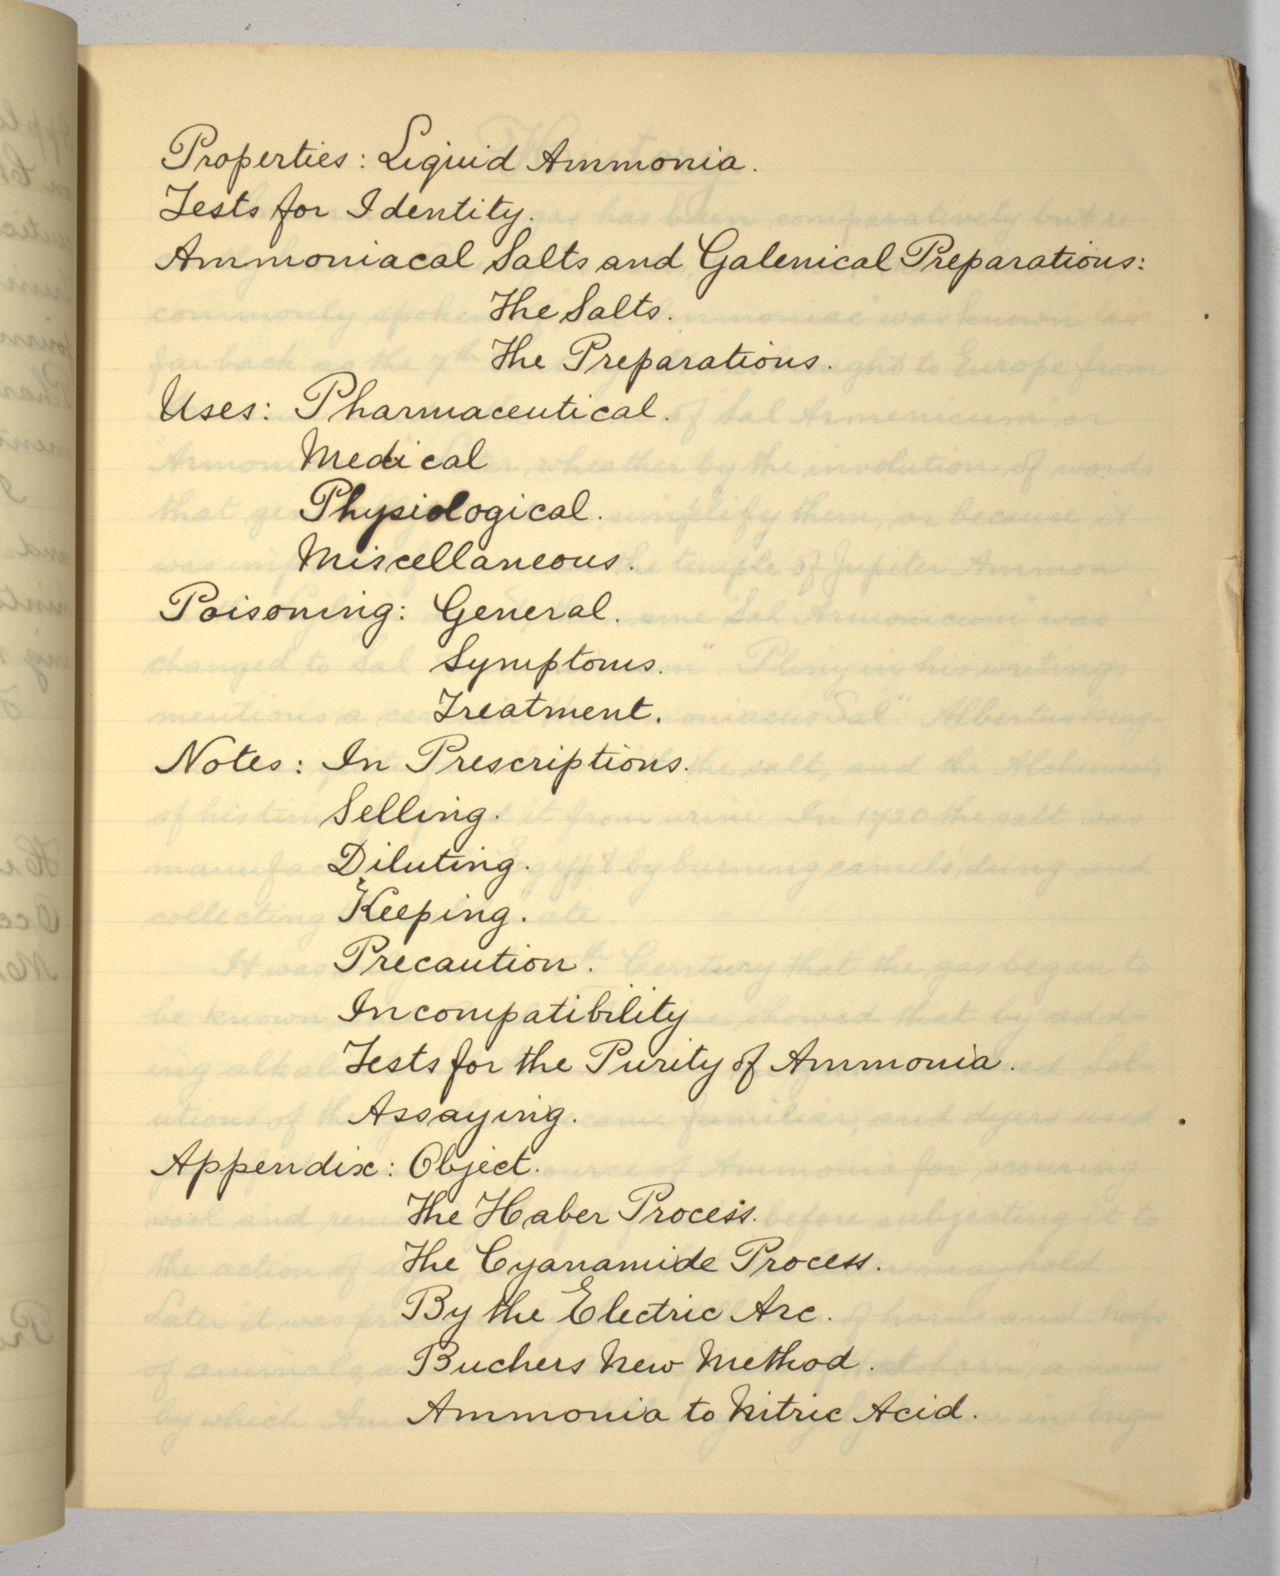 Properties: Liquid Ammonia.
Tests for Identity.
Ammoniacal Salts and Galenical Preparations:
The Salts.
The Preparations.
Uses: Pharmaceutical.
Medical
Physiological.
Miscellaneous.
Poisoning: General.
Symptoms.
Treatment.
Notes: In Prescriptions.
Selling.
Diluting.
Keeping.
Precaution.
Incompatibility
Tests for the Purity of Ammonia.
Assaying.
Appendix: Object.
The Haber Process.
The Cyanamide Process.
By the Electric Arc.
Buchers New Method.
Ammonia to Nitric Acid.